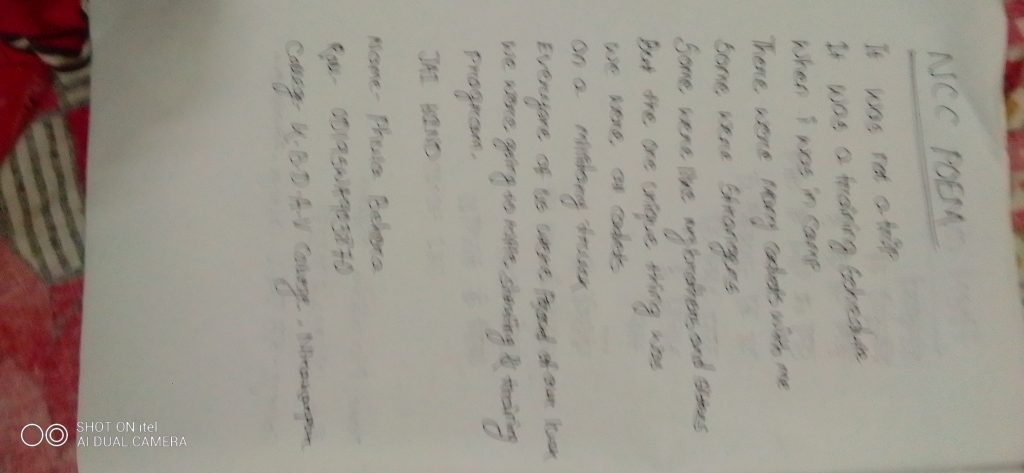 NCC POEM
It was not a trip
It was a training schedule
When I was in camp
There were many cadets with me
Some were strangers
Some were like my brothers and sisters
But the one unique thing was
we were all cadets
on a military truck
Everyone of us were Proud of our luck
we were going to make shooting & training
program.
JAI HIND
Name- Behera
College U.B.D.A.V College,
SHOT ON itel
AI DUAL CAMERA